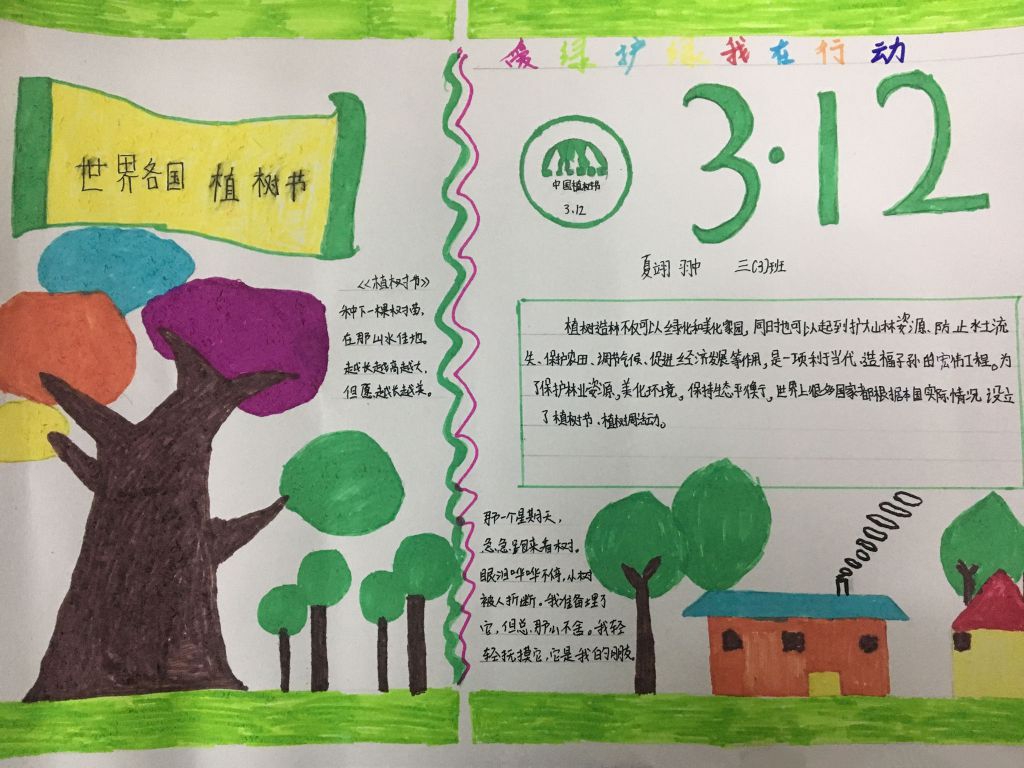 世界各国 植树节
《植树节》
种下一棵树苗，
在那山水佳地。
越长越高越大，
但愿越长越美。
爱绿护绿我在行动
3·12
中国植树节
3.12
夏翊翀 三(3)班
植树造林不仅可以绿化和美化家园，同时也可以起到扩大山林资源、防止水土流
失、保护农田、调节气候、促进经济发展等作用，是一项利于当代、造福子孙的宏伟工程。为
了保护林业资源，美化环境，保持生态平衡，世界上很多国家都根据本国实际情况设立
了植树节、植树周活动。
那一个星期天，
急急跑来看树。
眼泪哗哗不停，小树
被人折断。我准备埋了
它，但总那么不舍。我轻
轻抚摸它，它是我的朋友。